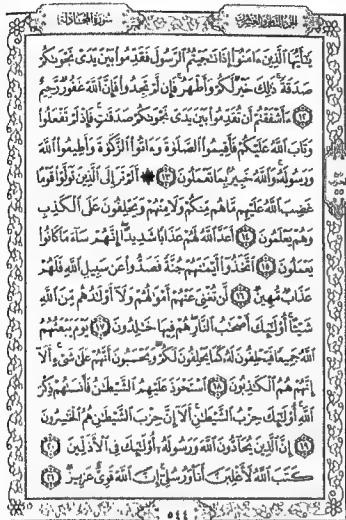 سورة المجادلة الجزء الثامن والعشرون
يَٰٓأَيُّهَا ٱلَّذِينَ ءَامَنُوٓا۟ إِذَا نَٰجَيْتُمُ ٱلرَّسُولَ فَقَدِّمُوا۟ بَيْنَ يَدَىْ نَجْوَىٰكُمْ
صَدَقَةً ۚ ذَٰلِكَ خَيْرٌ لَّكُمْ وَأَطْهَرُ ۚ فَإِن لَّمْ تَجِدُوا۟ فَإِنَّ ٱللَّهَ غَفُورٌ رَّحِيمٌ
١٢ ءَأَشْفَقْتُمْ أَن تُقَدِّمُوا۟ بَيْنَ يَدَىْ نَجْوَىٰكُمْ صَدَقَٰتٍ ۚ فَإِذْ لَمْ تَفْعَلُوا۟
وَتَابَ ٱللَّهُ عَلَيْكُمْ فَأَقِيمُوا۟ ٱلصَّلَوٰةَ وَءَاتُوا۟ ٱلزَّكَوٰةَ وَأَطِيعُوا۟ ٱللَّهَ
وَرَسُولَهُۥ ۚ وَٱللَّهُ خَبِيرٌۢ بِمَا تَعْمَلُونَ ١٣ ۞ أَلَمْ تَرَ إِلَى ٱلَّذِينَ تَوَلَّوْا۟ قَوْمًا
غَضِبَ ٱللَّهُ عَلَيْهِم مَّا هُم مِّنكُمْ وَلَا مِنْهُمْ وَيَحْلِفُونَ عَلَى ٱلْكَذِبِ
وَهُمْ يَعْلَمُونَ ١٤ أَعَدَّ ٱللَّهُ لَهُمْ عَذَابًا شَدِيدًا ۖ إِنَّهُمْ سَآءَ مَا كَانُوا۟
يَعْمَلُونَ ١٥ ٱتَّخَذُوٓا۟ أَيْمَٰنَهُمْ جُنَّةً فَصَدُّوا۟ عَن سَبِيلِ ٱللَّهِ فَلَهُمْ
عَذَابٌ مُّهِينٌ ١٦ لَّن تُغْنِىَ عَنْهُمْ أَمْوَٰلُهُمْ وَلَآ أَوْلَٰدُهُم مِّنَ ٱللَّهِ
شَيْـًٔا ۚ أُو۟لَٰٓئِكَ أَصْحَٰبُ ٱلنَّارِ ۖ هُمْ فِيهَا خَٰلِدُونَ ١٧ يَوْمَ يَبْعَثُهُمُ
ٱللَّهُ جَمِيعًا فَيَحْلِفُونَ لَهُۥ كَمَا يَحْلِفُونَ لَكُمْ ۖ وَيَحْسَبُونَ أَنَّهُمْ عَلَىٰ شَىْءٍ ۚ أَلَآ
إِنَّهُمْ هُمُ ٱلْكَٰذِبُونَ ١٨ ٱسْتَحْوَذَ عَلَيْهِمُ ٱلشَّيْطَٰنُ فَأَنسَىٰهُمْ ذِكْرَ
ٱللَّهِ ۚ أُو۟لَٰٓئِكَ حِزْبُ ٱلشَّيْطَٰنِ ۚ أَلَآ إِنَّ حِزْبَ ٱلشَّيْطَٰنِ هُمُ ٱلْخَٰسِرُونَ
١٩ إِنَّ ٱلَّذِينَ يُحَآدُّونَ ٱللَّهَ وَرَسُولَهُۥٓ أُو۟لَٰٓئِكَ فِى ٱلْأَذَلِّينَ ٢٠
كَتَبَ ٱللَّهُ لَأَغْلِبَنَّ أَنَا۠ وَرُسُلِىٓ ۚ إِنَّ ٱللَّهَ قَوِىٌّ عَزِيزٌ ٢١
٥٤٤